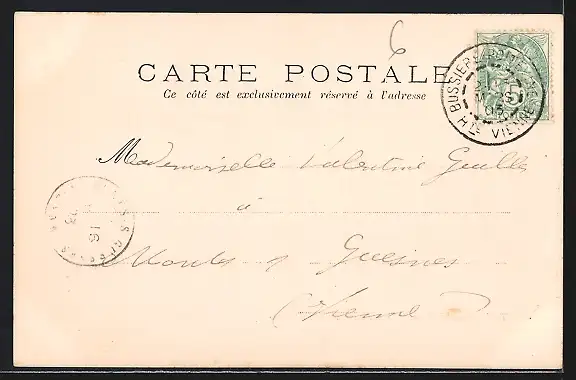 6
CARTE POSTALE
Ce côté est exclusivement réservé à l'adresse
BUSSIERE-POITEVINE
03
HTE VIENNE
5
Mademoiselle Valentine Guillé
à
Monts s Guesnes
(Vienne)
16
03